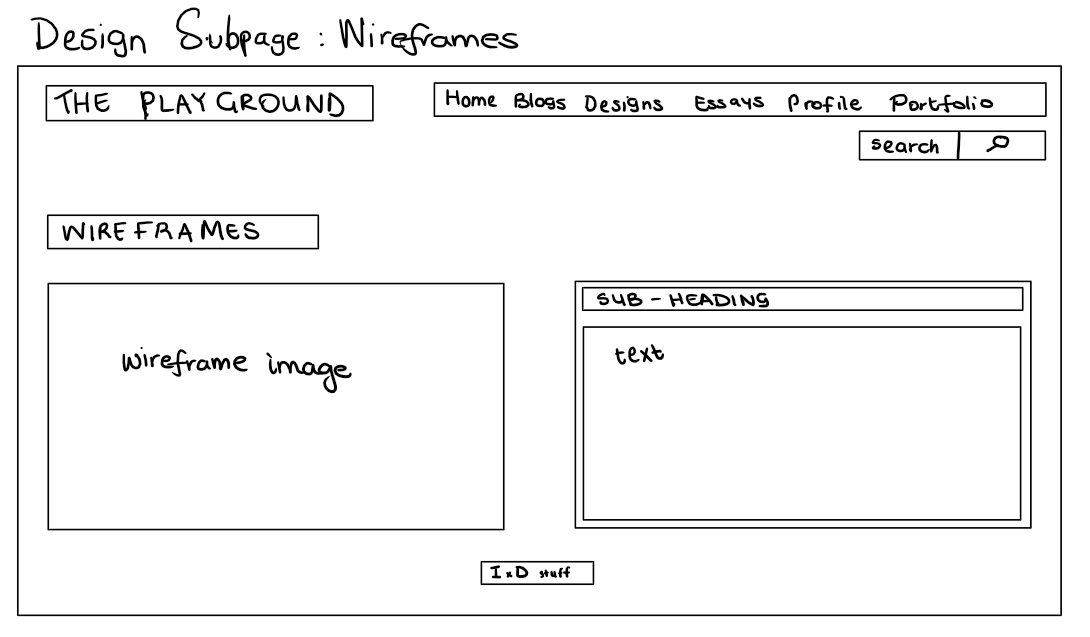 Design Subpage : Wireframes
THE PLAYGROUND
Home Blogs Designs Essays Profile Portfolio
search
WIREFRAMES
wireframe image
SUB - HEADING
text
IxD stuff